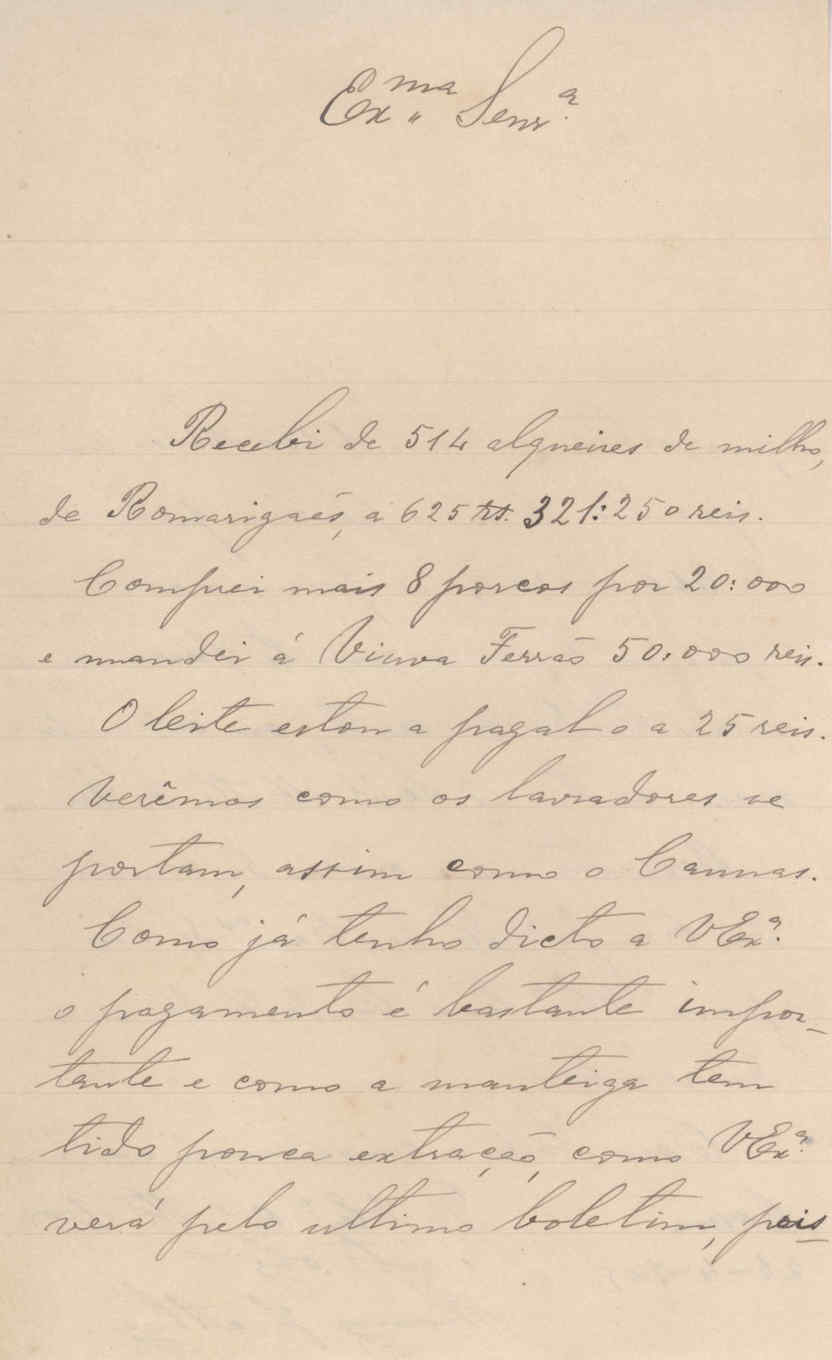 Ex.ma Senr.a
Recebi de 514 alqueires de milho,
de Romarigaẽs, a 625 rs. 321:250 reis.
Comprei mais 8 porcos por 20:000
e mandei á Viuva Ferrás 50:000 reis.
O leite estou a pagal o a 25 reis.
Verêmos como os lavradores se
portam, assim como o Cannas.
Como já tenho dicto a VExª.
o pagamento é bastante impor-
tante e como a manteiga tem
tido pouca extração, como VExª.
verá pelo ultimo boletim, pois